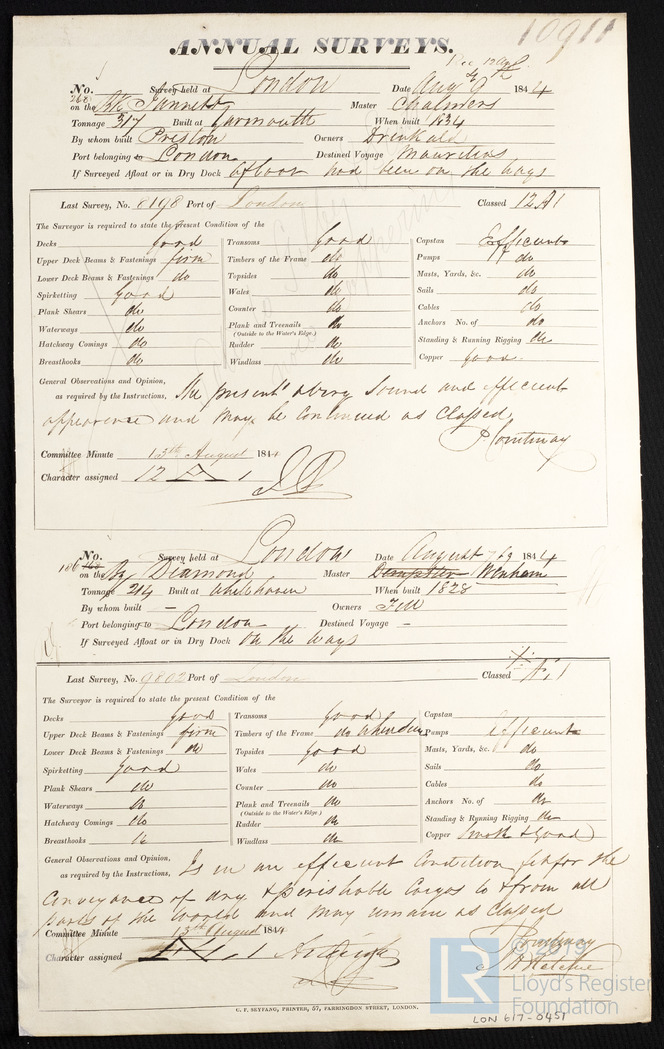 10911
ANNUAL SURVEYS.
No. 268 Survey held at London Date Aug 9 1844
on the Bk Jannett Master Chalmers
Tonnage 317 Built at Yarmouth When built 1834
By whom built Preston Owners Drinkald
Port belonging to London Destined Voyage Mauritius
If Surveyed Afloat or in Dry Dock afloat had been on the ways
Last Survey, No. 8198 Port of London Classed 12 A 1
The Surveyor is required to state the present Condition of the
Decks good Transoms good Capstan Efficient
Upper Deck Beams & Fastenings firm Timbers of the Frame do Pumps do
Lower Deck Beams & Fastenings do Topsides do Masts, Yards, &c. do
Spirketting good Wales do Sails do
Plank Shears do Counter do Cables do
Waterways do Plank and Treenails do Anchors No. of do
(Outside to the Water's Edge.)
Hatchway Comings do Rudder do Standing & Running Rigging do
Breasthooks do Windlass do Copper good
General Observations and Opinion,
as required by the Instructions, sound and efficient
appearance and may be continued as Classed.
P Courtenay
Committee Minute 13th August 1844
Character assigned 12 A 1
No. Survey held at London Date August 7 & 9 1844
on the Bg Diamond Master Dempster Wenham
Tonnage 214 Built at Whitehaven When built 1828
By whom built - Owners Fell
Port belonging to London Destined Voyage -
If Surveyed Afloat or in Dry Dock on the ways
Last Survey, No. 9802 Port of London Classed Æ 1
The Surveyor is required to state the present Condition of the
Decks good Transoms good Capstan
Upper Deck Beams & Fastenings firm Timbers of the Frame do Pumps Efficient
Lower Deck Beams & Fastenings do Topsides good Masts, Yards, &c. do
Spirketting good Wales do Sails do
Plank Shears do Counter do Cables do
Waterways do Plank and Treenails do Anchors No. of do
(Outside to the Water's Edge.)
Hatchway Comings do Rudder do Standing & Running Rigging do
Breasthooks do Windlass do Copper Smooth & Good
General Observations and Opinion,
as required by the Instructions, Is in an efficient Condition fit for the
Conveyance of dry & perishable Cargos to & from all
parts of the World and may remain as Classed
Committee Minute 13th August 1844
P Courtenay
Character assigned Æ 1
© 2019
Lloyd's Register
Foundation
LR
C. F. SEYFANG, PRINTER, 57, FARRINGDON STREET, LONDON.
LON 617-0451